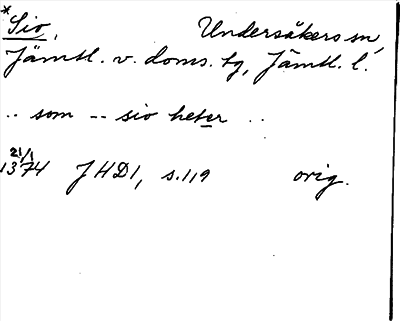 *Sio, Undersåkers sn,
Jämtl. v. doms. tg, Jämtl. l.
.. som -- sio heter ..
21/1
1374 JHD1, s.119 orig.